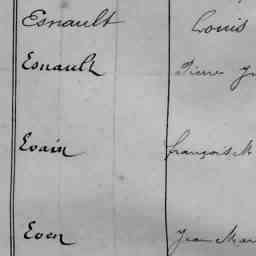 Esnault Louis
Esnault Pierre
Evain françois M
Even Jean Mar